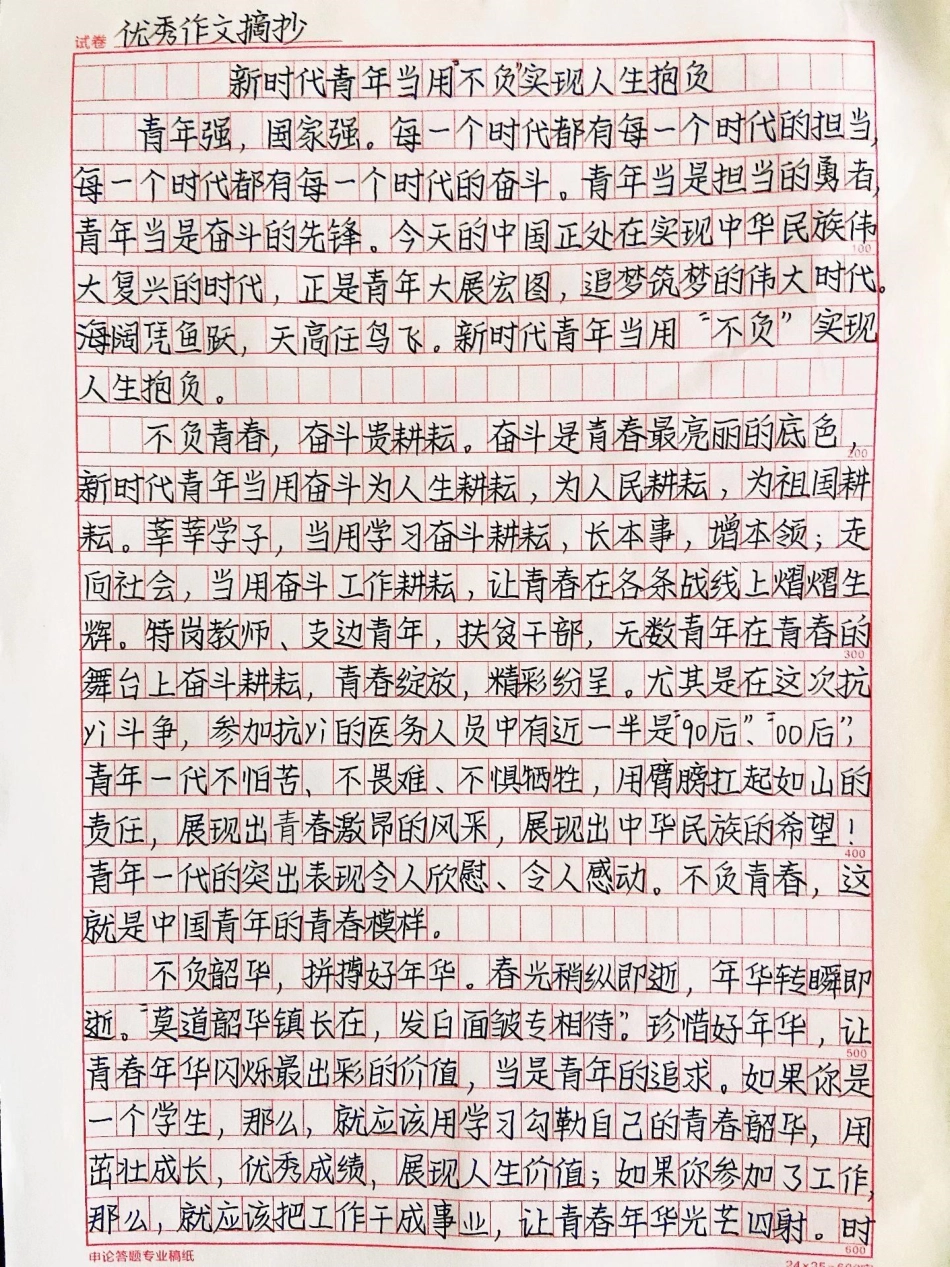 试卷 优秀作文摘抄
新时代青年当用“不负”实现人生抱负
青年强，国家强。每一个时代都有每一个时代的担当，
每一个时代都有每一个时代的奋斗。青年当是担当的勇者，
青年当是奋斗的先锋。今天的中国正处在实现中华民族伟
100
大复兴的时代，正是青年大展宏图，追梦筑梦的伟大时代。
海阔凭鱼跃，天高任鸟飞。新时代青年当用“不负”实现
人生抱负。
不负青春，奋斗贵耕耘。奋斗是青春最亮丽的底色，
200
新时代青年当用奋斗为人生耕耘，为人民耕耘，为祖国耕
耘。莘莘学子，当用学习奋斗耕耘，长本事，增本领；走
向社会，当用奋斗工作耕耘，让青春在各条战线上熠熠生
辉。特岗教师、支边青年，扶贫干部，无数青年在青春的
300
舞台上奋斗耕耘，青春绽放，精彩纷呈。尤其是在这次抗
yi斗争，参加抗yi的医务人员中有近一半是“90后”、“00后”，
青年一代不怕苦、不畏难、不惧牺牲，用臂膀扛起如山的
责任，展现出青春激昂的风采，展现出中华民族的希望！
400
青年一代的突出表现令人欣慰、令人感动。不负青春，这
就是中国青年的青春模样。
不负韶华，拼搏好年华。春光稍纵即逝，年华转瞬即
逝。“莫道韶华镇长在，发白面皱专相待”。珍惜好年华，让
500
青春年华闪烁最出彩的价值，当是青年的追求。如果你是
一个学生，那么，就应该用学习勾勒自己的青春韶华，用
茁壮成长，优秀成绩，展现人生价值；如果你参加了工作，
那么，就应该把工作干成事业，让青春年华光芒四射。时
600
申论答题专业稿纸